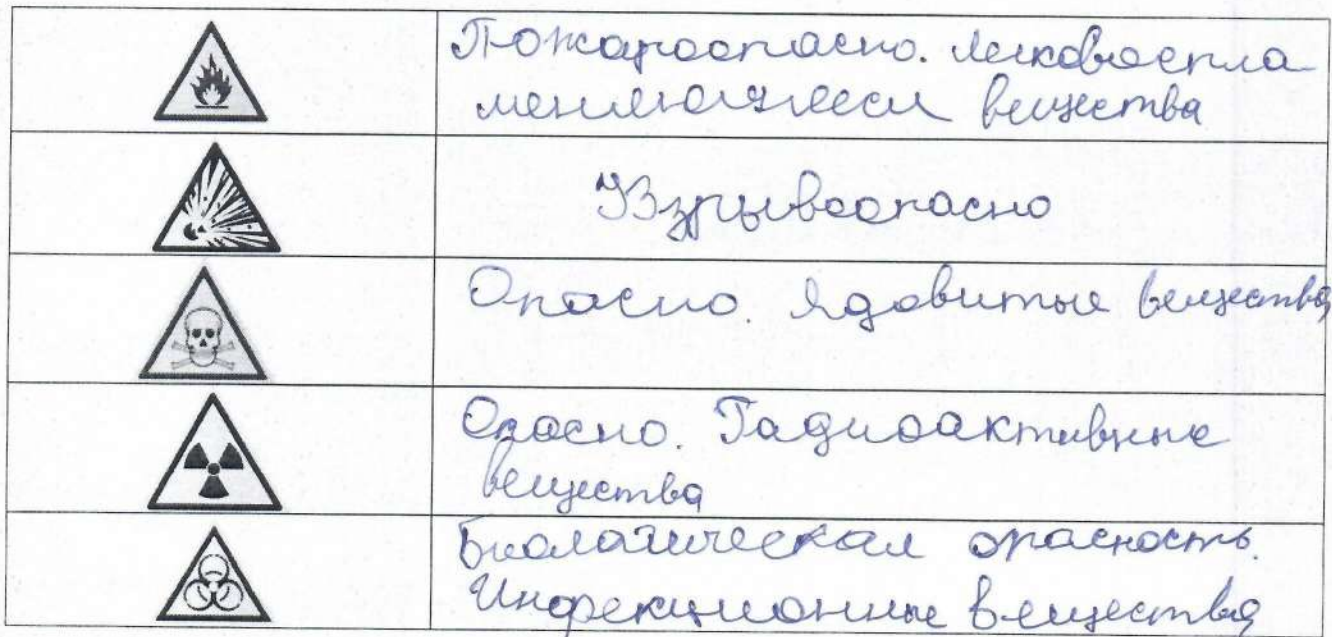 Пожароопасно. Легковоспла
меняющиеся вещества
Взрывоопасно
Опасно. Ядовитые вещества
Опасно. Радиоактивные
вещества
Биологическая опасность.
Инфекционные вещества